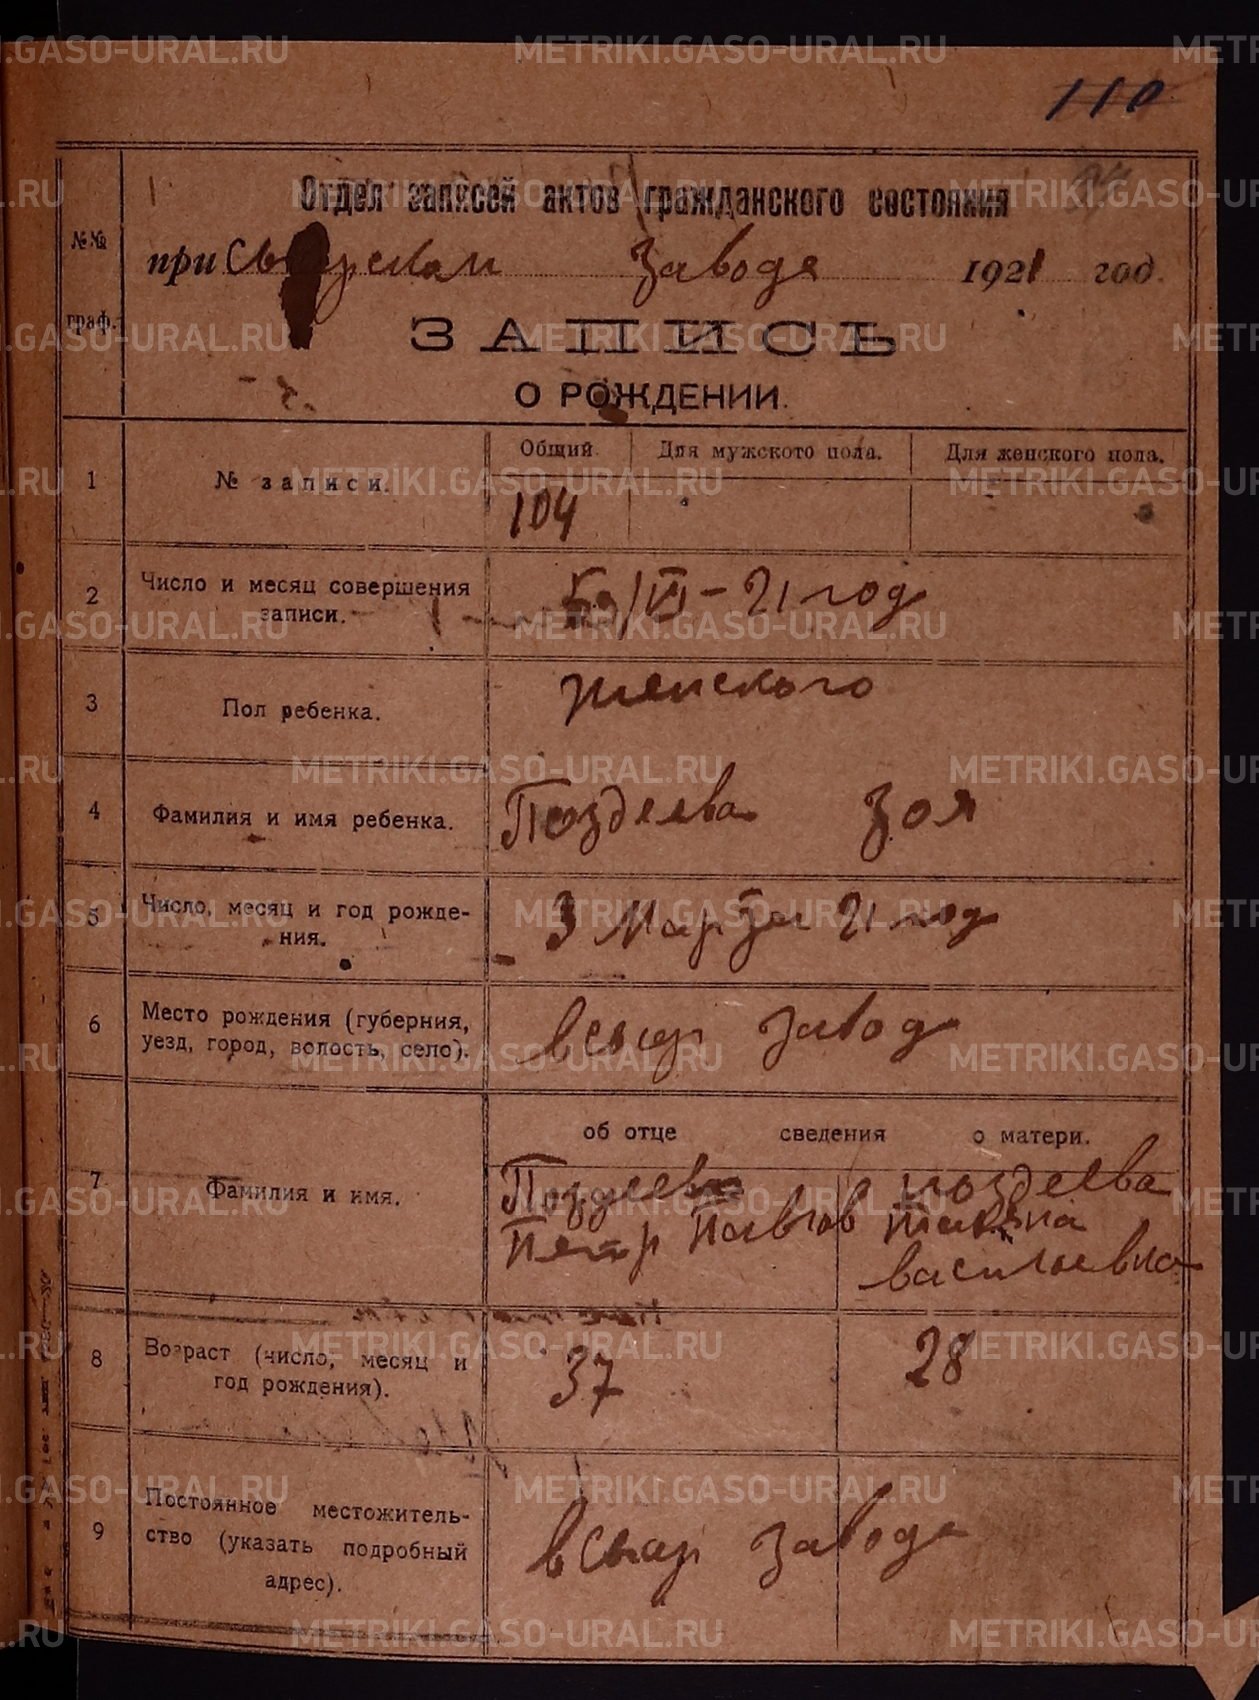 110
Отдел записей актов гражданского состояния
№№ граф.
при заводе 1921 год.
ЗАПИСЬ
О РОЖДЕНИИ.
Общий. Для мужского пола. Для женского пола.
1 № записи. 104
2 Число и месяц совершения /VI - 21 год
записи.
3 Пол ребенка. женского
4 Фамилия и имя ребенка. Поздеева Зоя
5 Число, месяц и год рожде- 3 Марта 21 год
ния.
6 Место рождения (губерния, в сыср завод
уезд, город, волость, село).
об отце сведения о матери.
7 Фамилия и имя. Поздеев поздеева
Петр Павлов
васильевна
8 Возраст (число, месяц и 37 28
год рождения).
9 Постоянное местожитель- в заводе
ство (указать подробный
адрес).
METRIKI.GASO-URAL.RU